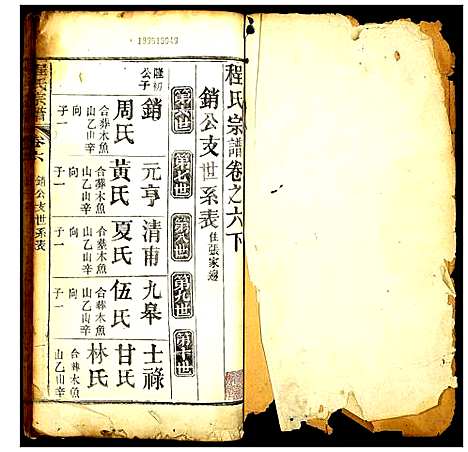 程氏宗譜卷之六下
銷公支世系表 住張家邊
第六世
第七世
第八世
第九世
第十世
隆初公子
銷
周氏
合葬木魚山乙山辛向
子一
元亨
黃氏
合葬木魚山乙山辛向
子一
清甫
夏氏
合葬木魚山乙山辛向
子一
九皋
伍氏
合葬木魚山乙山辛向
子一
士祿
甘氏
林氏
合葬木魚山乙山辛
程氏宗譜
卷六
銷公支世系表